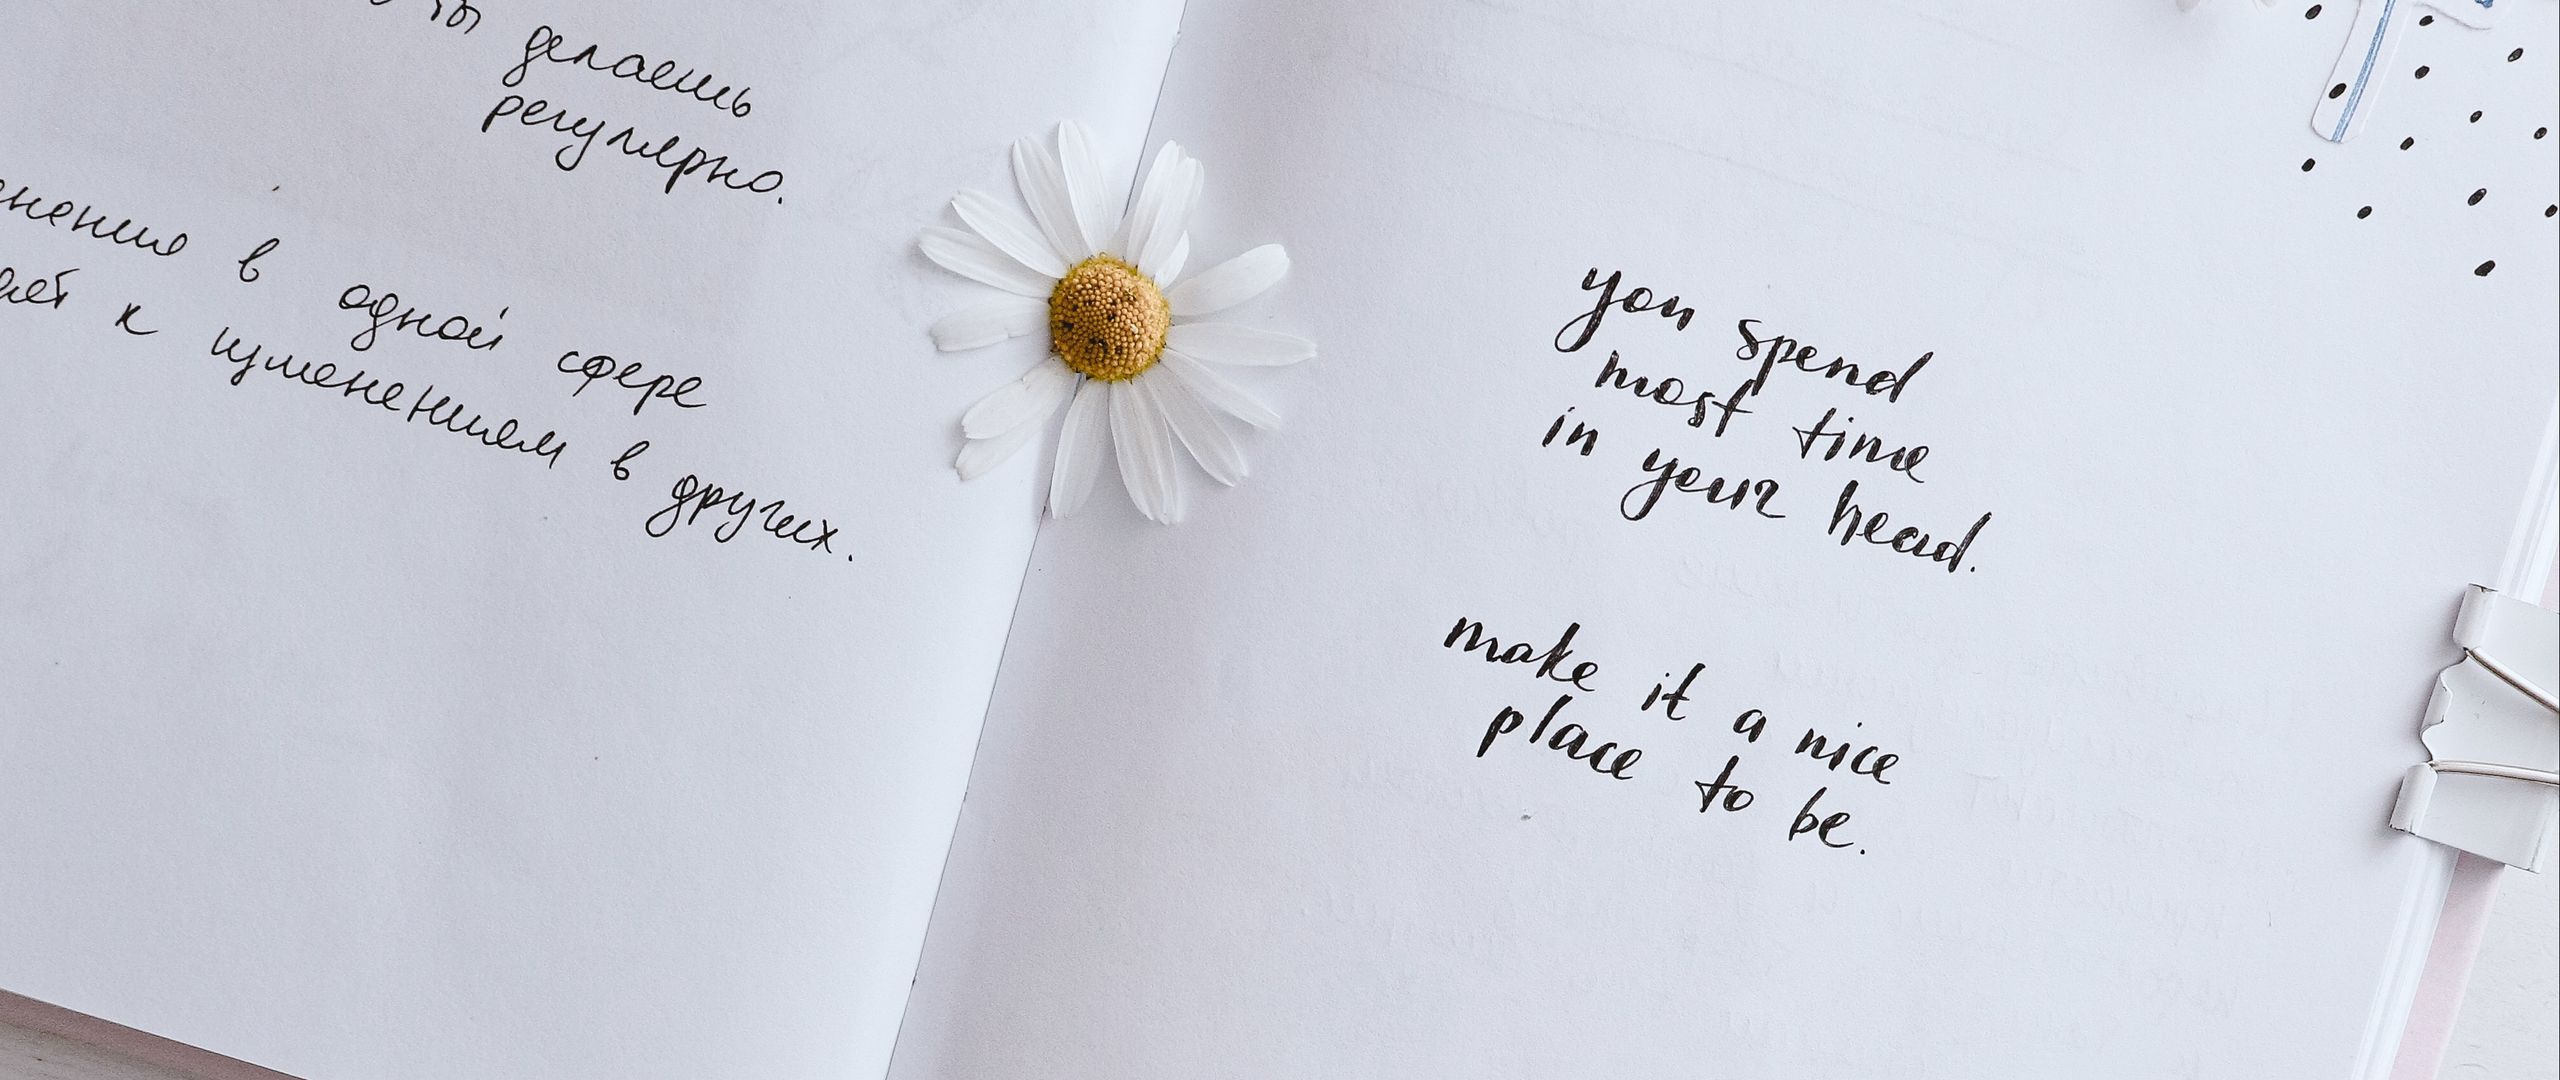 ты делаешь
регулярно.
в одной сфере
к изменениям в других.
you spend
most time
in your head.
make it a nice
place to be.